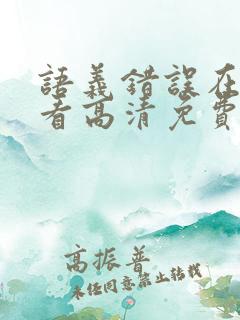 語義錯誤在
看高清免費
高振普
未经同意禁止转载